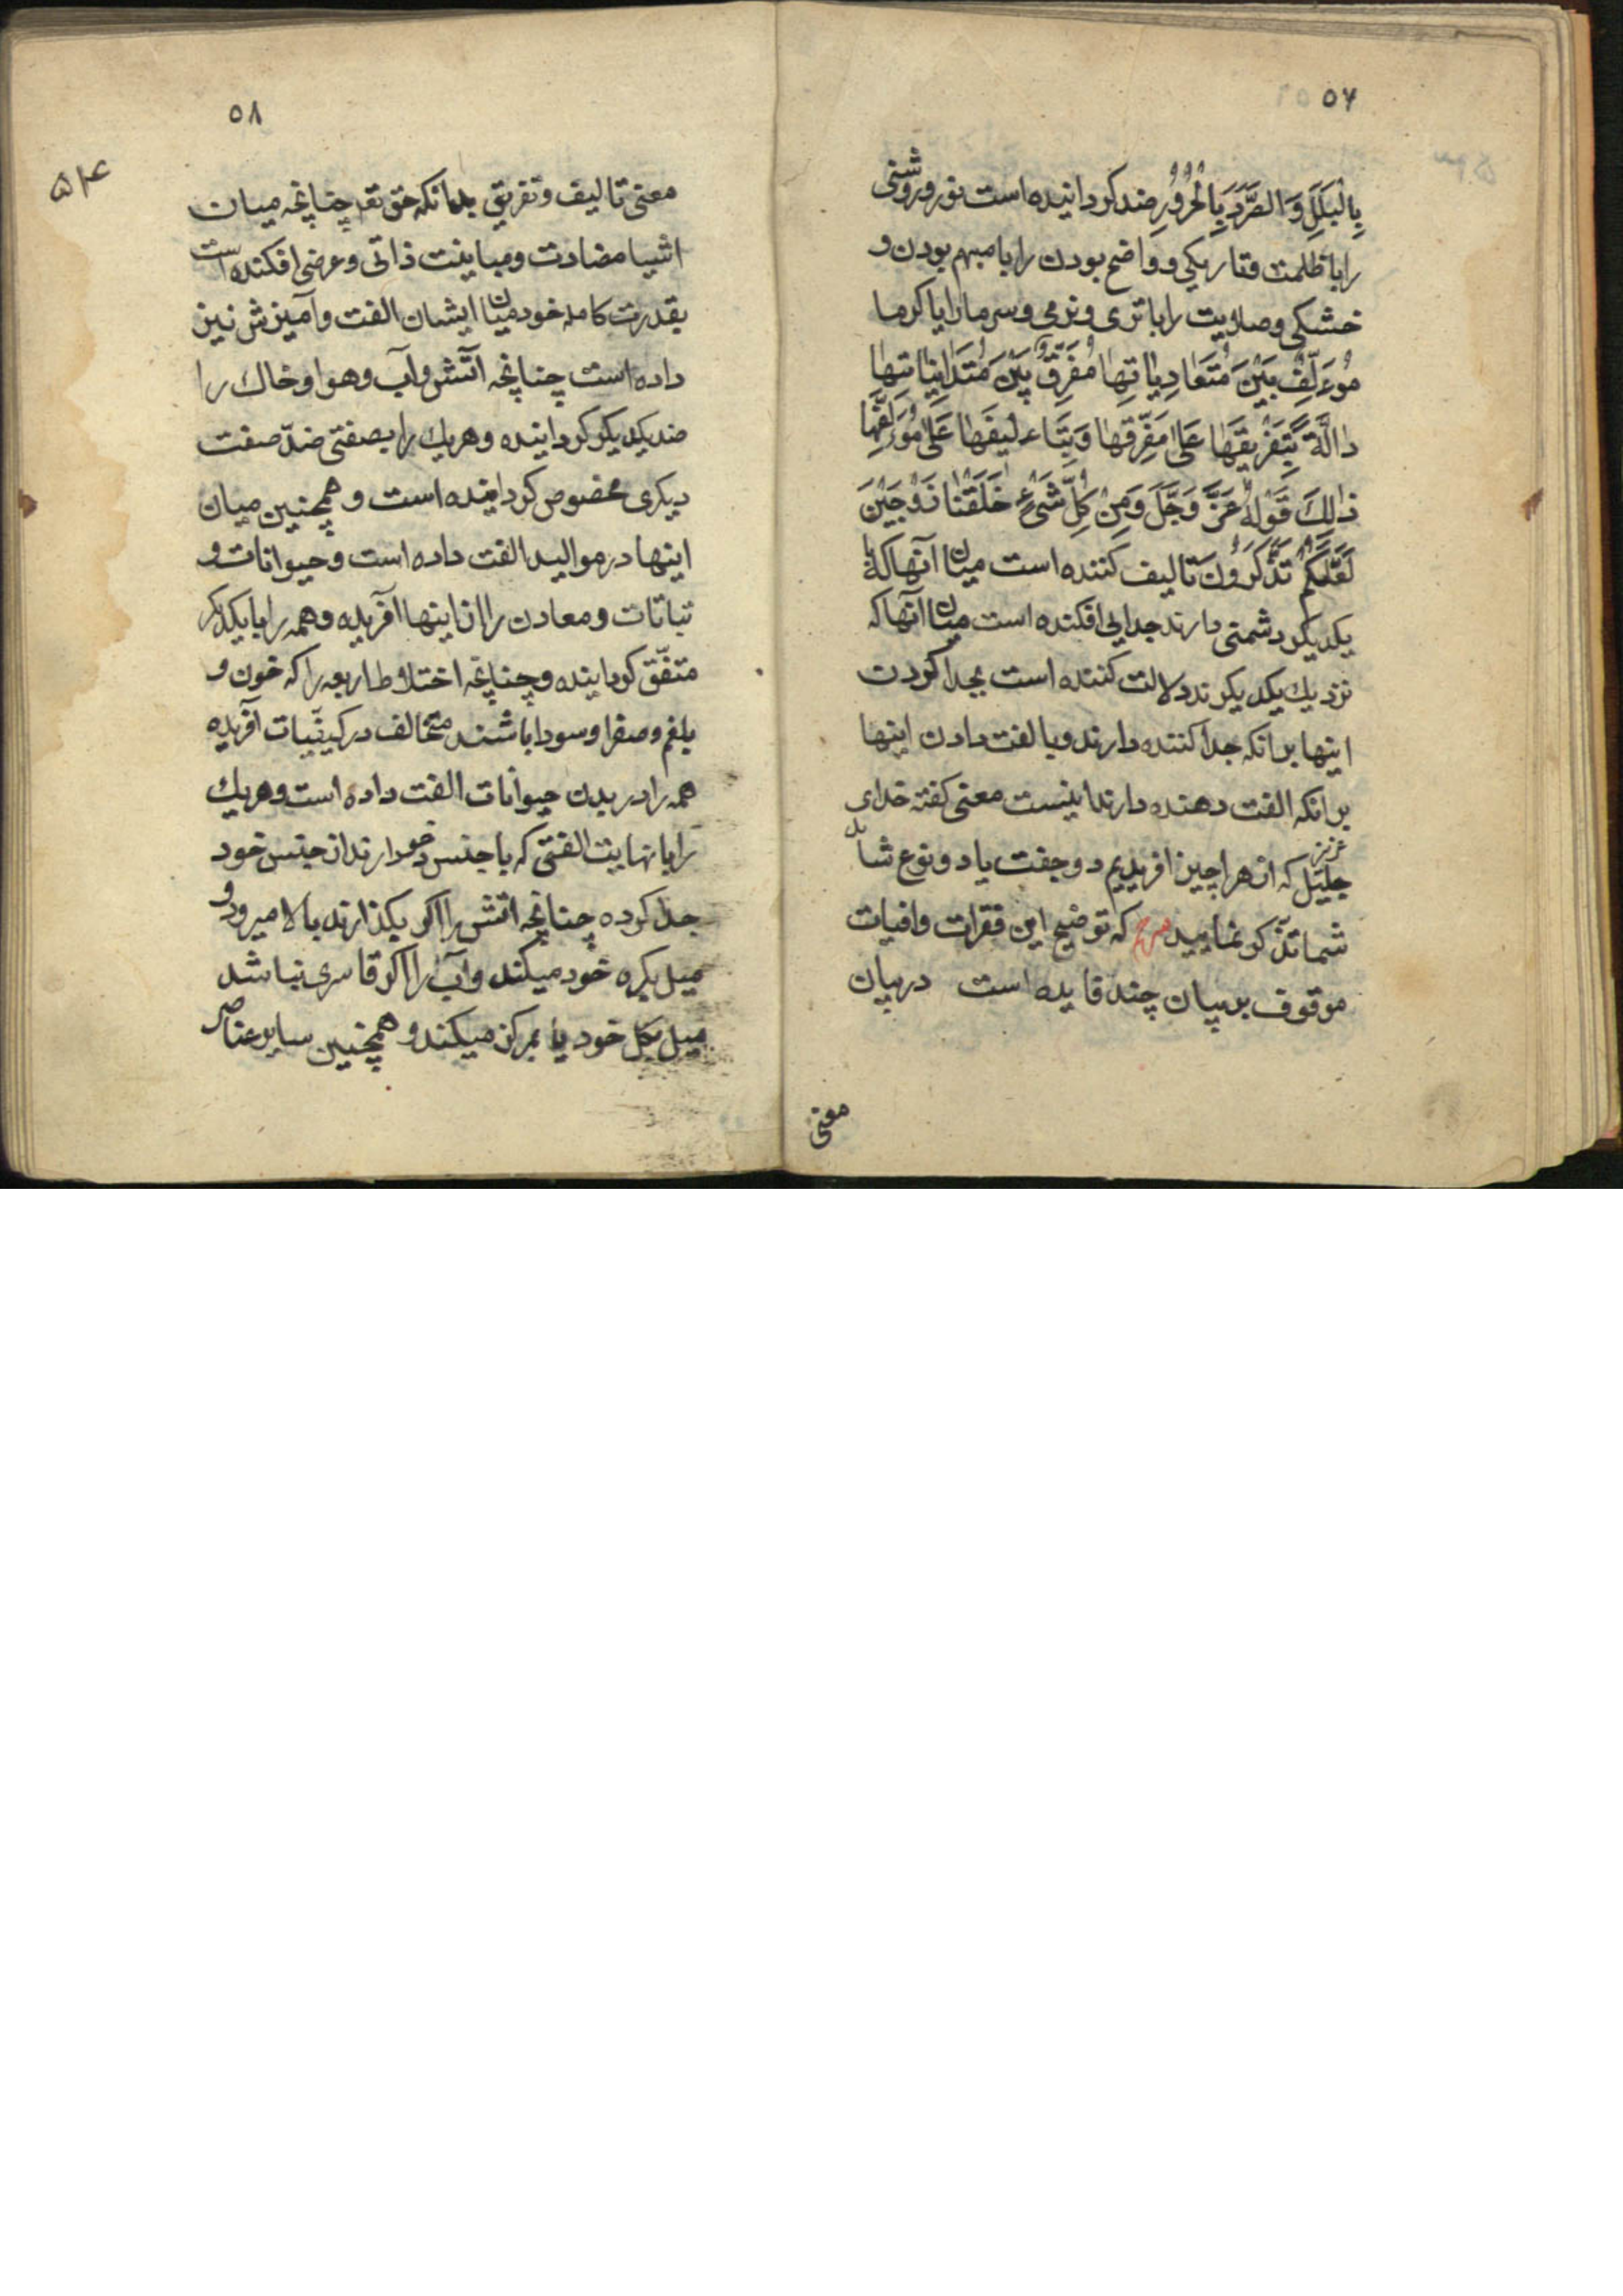 ۵۷
بِالْبَلَلِ وَ الصَّرَدَ بِالْحُرُوُرِ ضد کردانیده است نور و روشنی
را با ظلمت و تاریکی و واضح بودن را با مبهم بودن و
خشکی و صلابت را با تری و نرمی و سرما را با کرما
مُوءَلِّفٌ بَیْنَ مُتَعَادِیاتِهَا مُفَرِّقٌ بَیْنَ مُتَدَانِیَاتِهَا
دَالَّةٌ بِتَفْرِیقِهَا عَلَی مُفَرِّقِهَا وَ بِتَاءلیفِهَا عَلَی مُوَلِّفِهَا
ذٰلِکَ قَوْلُهُ عَزَّ وَجَلَّ وَمِنْ کُلِّ شَیْءٍ خَلَقْنَا زَوْجَیْنِ
لَعَلَّکُمْ تَذَکَّرُونَ تالیف کننده است میان آنها که با
یکدیکر دشمنی دارند جدایی افکنده است میان آنها که
نزدیك یکدیکرند دلالت کننده است بجدا کردن
اینها برانکه جدا کننده دارند و بالفت دادن اینها
برانکه الفت دهنده دارند اینست معنی کفته خدای
عزیز جلیل که از هر چیز افریدیم دو جفت یا دو نوع شاید
شما تذکر نمایید که توضیح این فقرات وافیات
موقوف بر بیان چند فایده است در بیان
معنی
۵۸
۵۴
معنی تالیف و تفریق بدانکه حق تعه چنانچه میان
اشیا مضادت و مباینت ذاتی و عرضی افکنده است
بقدرت کامله خود میان ایشان الفت و آمیزش نیز
داده است چنانچه آتش و آب و هوا و خاك را
ضد یکدیکر کردانیده و هریك را بصفتی ضدّ صفت
دیکری مخصوص کردانیده است و همچنین میان
اینها در موالید الفت داده است و حیوانات و
نباتات و معادن را از اینها آفریده و همه را با یکدیکر
متفّق کردانیده و چنانچه اختلاط اربعه را که خون و
بلغم و صفرا و سودا باشند متخالف در کیفیّات آفریده
همه را در بدن حیوانات الفت داده است و هریك
را با نهایت الفتی که با جنس خود دارند از جنس خود
جدا کرده چنانچه اتش را اکر بکذارند بالا میرود و
میل بکره خود میکند و آب را اکر قاسری نباشد
میل بکل خود یا بمرکز میکند و همچنین سایر عناصر